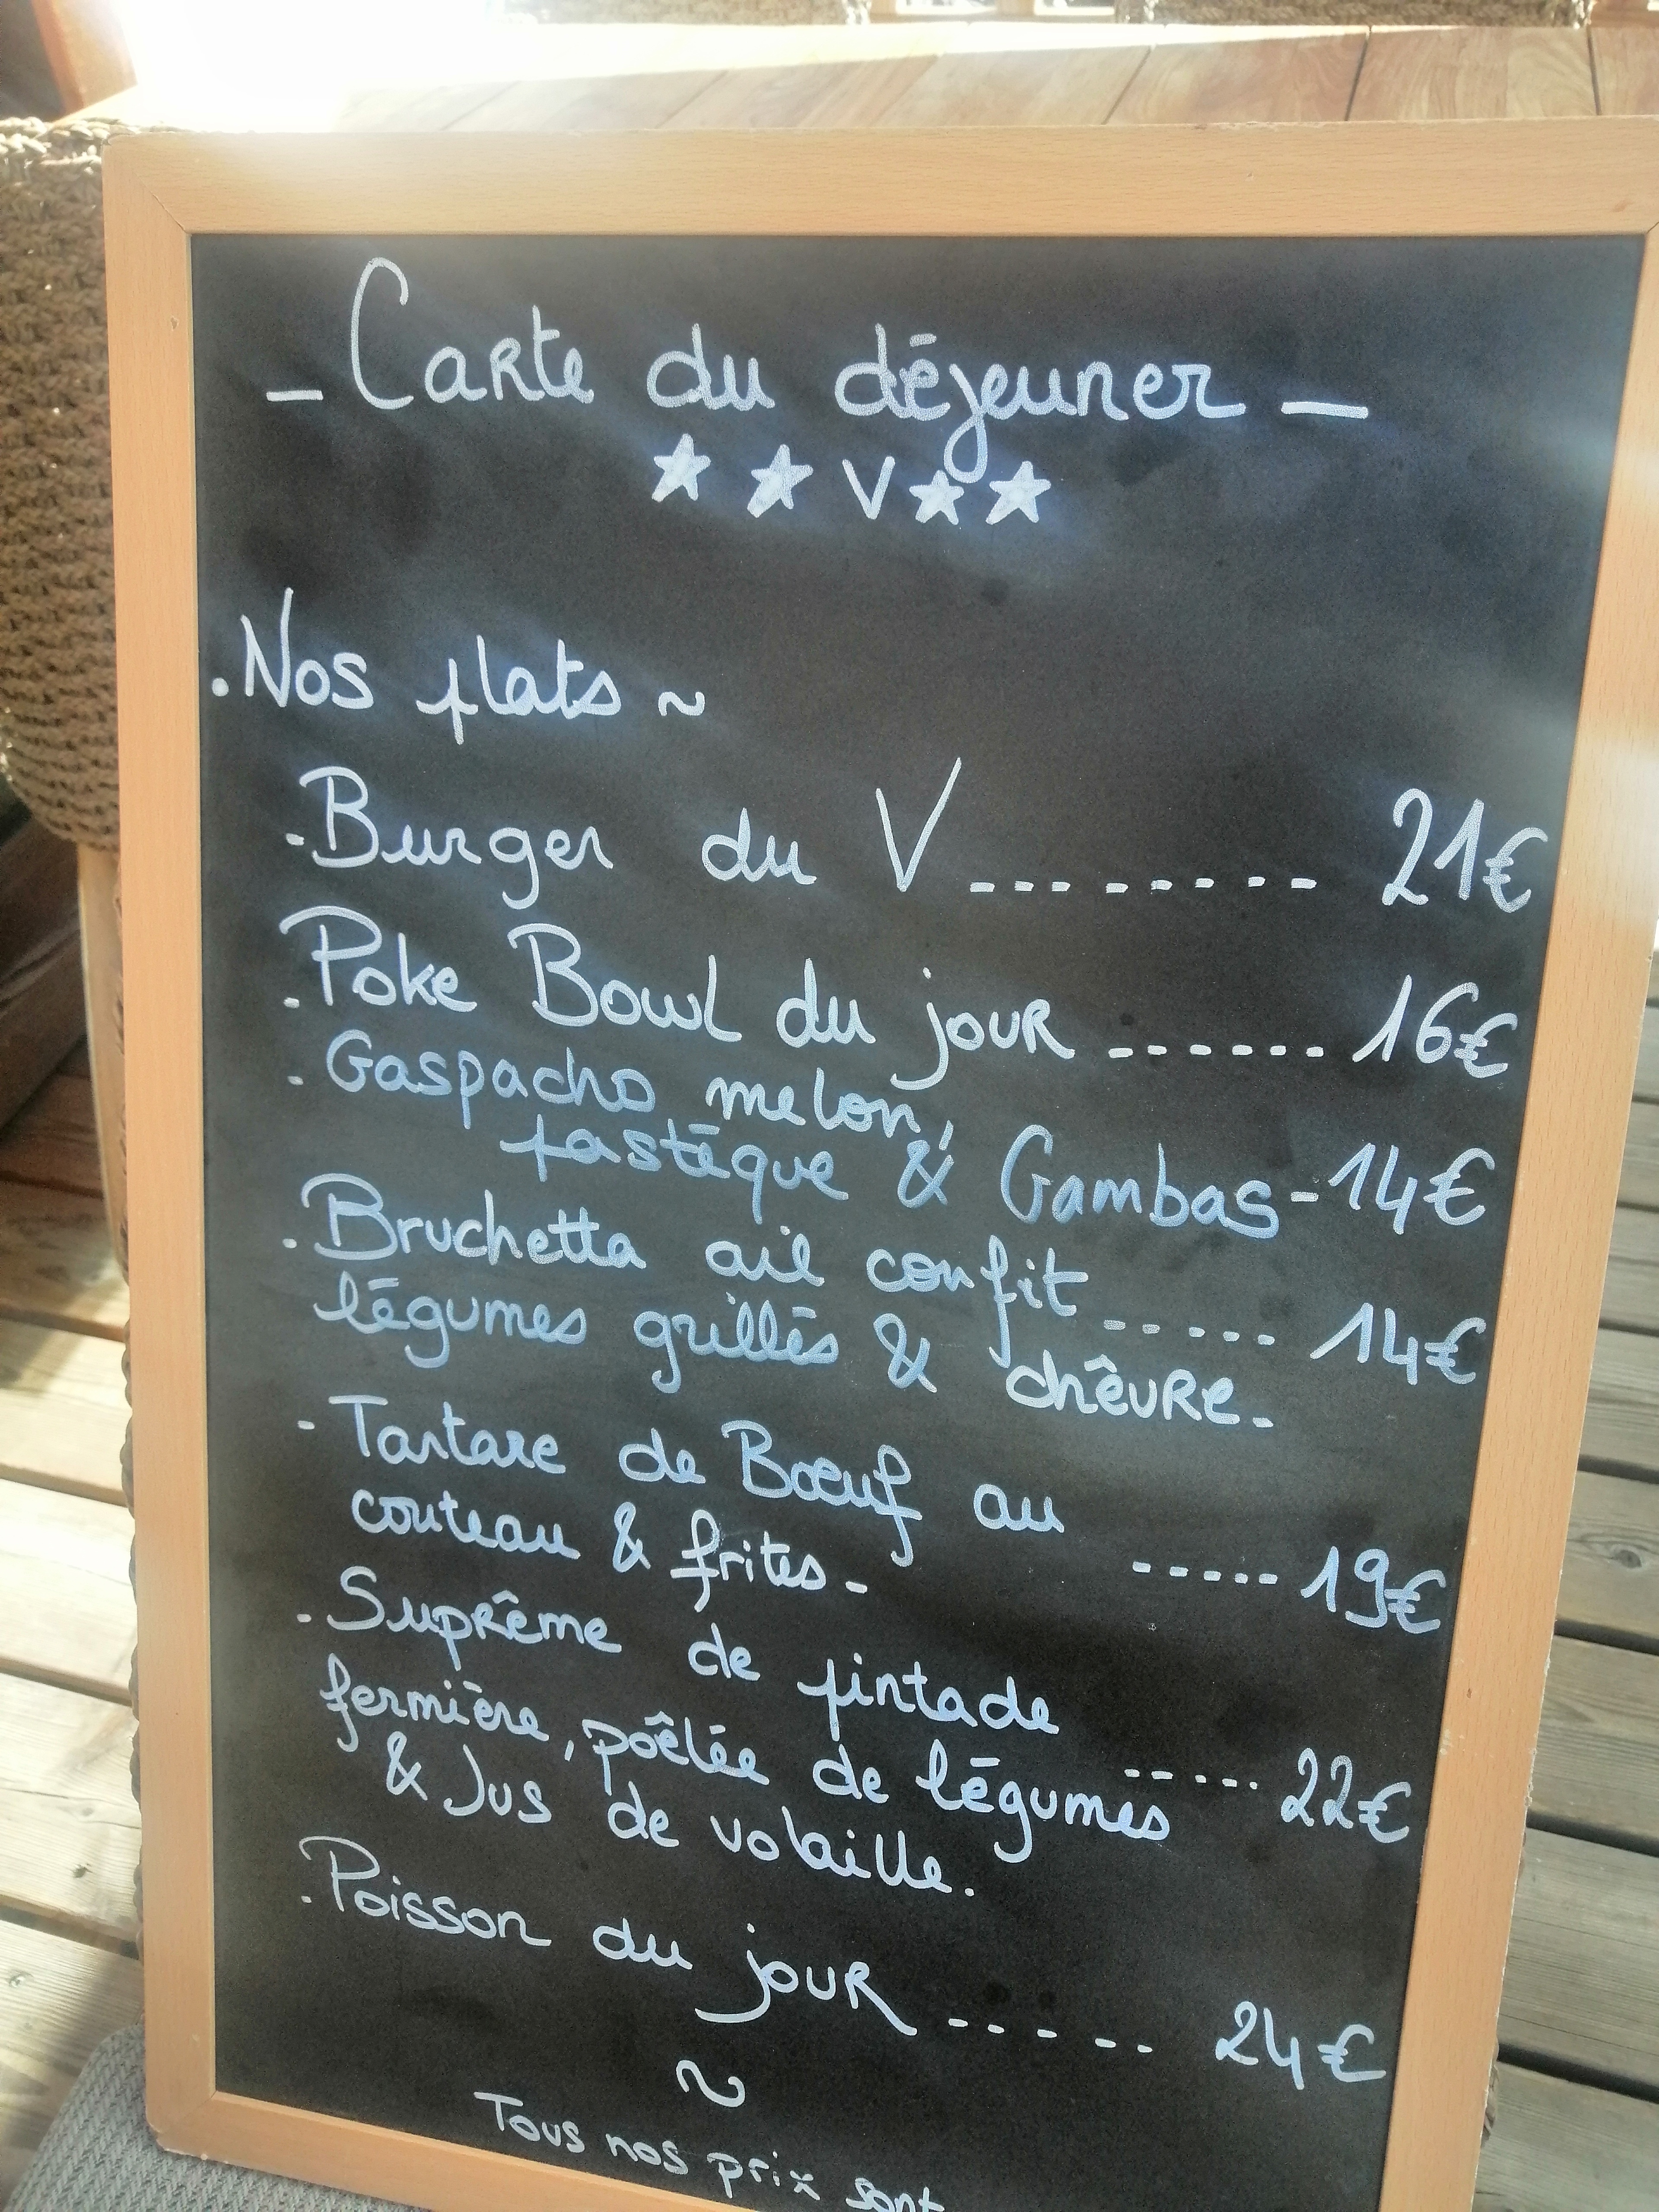 - Carte du déjeuner -
★ ★ V ★ ★
. Nos plats ~
- Burger du V --------- 21€
- Poke Bowl du jour ------ 16€
- Gaspacho melon,
pastèque & Gambas - 14€
- Bruchetta ail confit ----- 14€
légumes grillés & chêvre.
- Tartare de Bœuf au
couteau & frites. ----- 19€
- Suprême de pintade
fermière, poêlée de légumes ----- 22€
& Jus de volaille.
- Poisson du jour ----- 24€
~
Tous nos prix sont